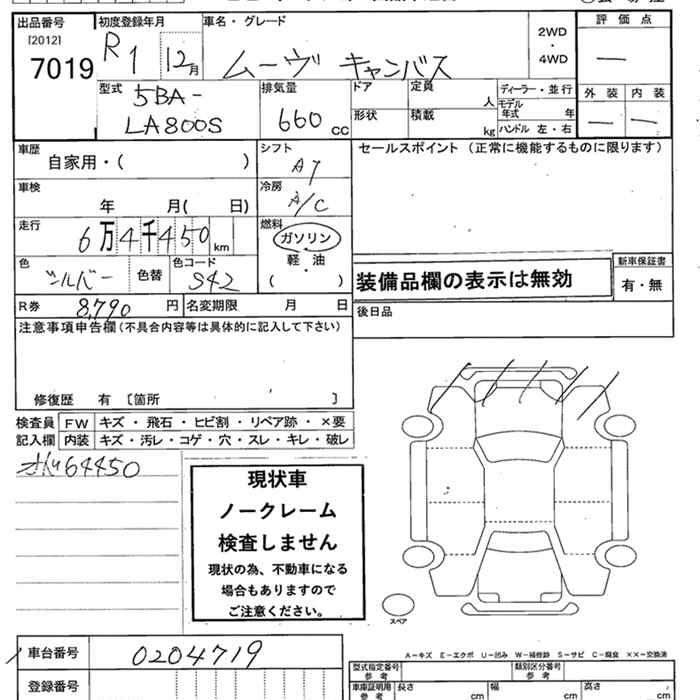 出品番号 初度登録年月 車名・グレード 評価点
[2012]
7019 R1 12月 ムーヴ キャンバス 2WD・4WD —
型式 排気量 ドア 定員 人 ディーラー・並行 外装 内装
5BA- 形状 積載 kg モデル年式 年 — —
LA800S 660cc ハンドル 左・右
車歴 シフト セールスポイント (正常に機能するものに限ります)
自家用・( ) AT
車検 冷房
年 月( 日) A/C
走行 燃料
6万4千450km ガソリン
軽・油
色 色替 色コード ( ) 新車保証書
シルバー S42 装備品欄の表示は無効 有・無
R券 8,790円 名変期限 月 日 後日品
注意事項申告欄(不具合内容等は具体的に記入して下さい)
修復歴 有 〔箇所 〕
検査員 FW キズ・飛石・ヒビ割・リペア跡・×要
記入欄 内装 キズ・汚レ・コゲ・穴・スレ・キレ・破レ
64450
現状車
ノークレーム
検査しません
現状の為、不動車になる
場合もありますので
ご注意ください。
スペア
車台番号 0204719
A-キズ E-エクボ U-凹み W-補修跡 S-サビ C-腐食 ××-交換済
型式指定番号参考 類別区分番号参考
登録番号 車庫証明用参考 長さ cm 幅 cm 高さ cm